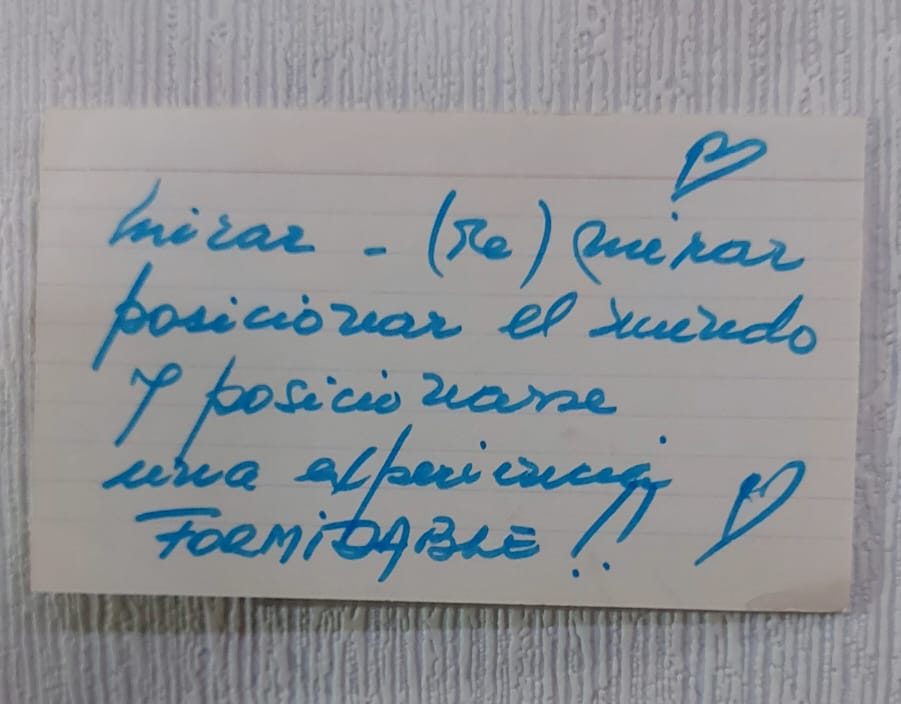 mirar - (Re) mirar
posicionar el mundo
y posicionarse
una experiencia
FORMIDABLE!!